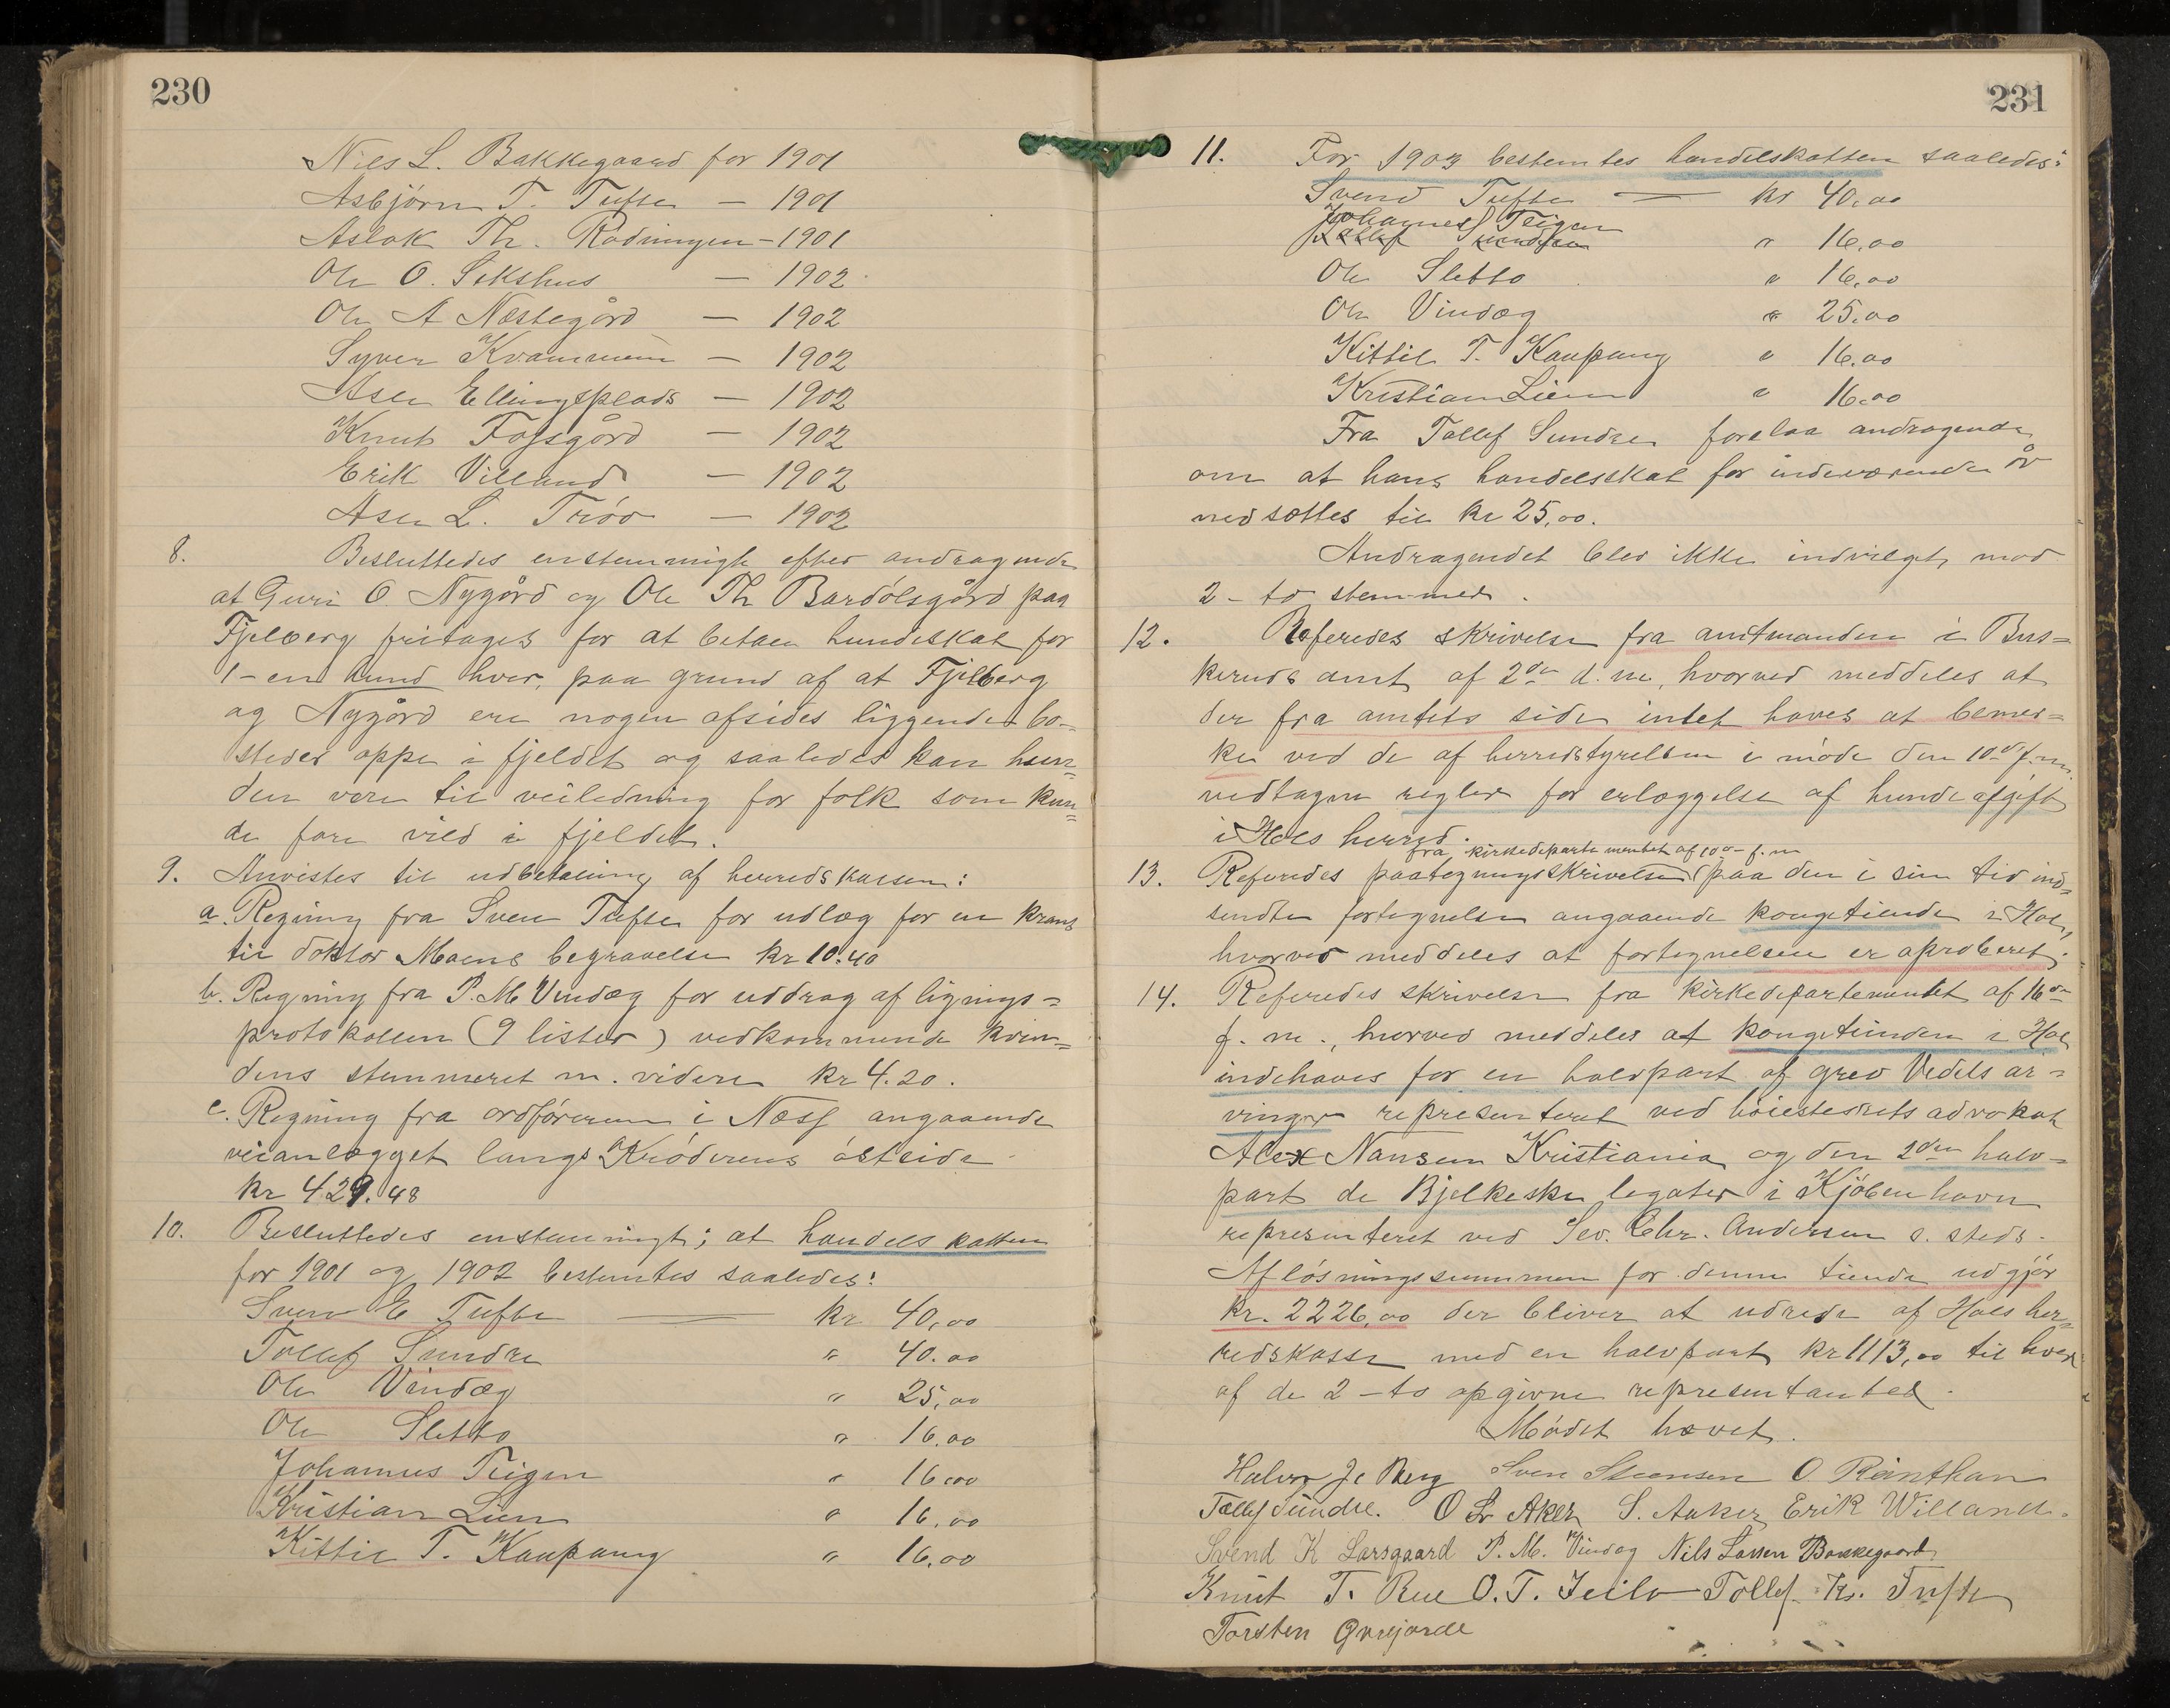 230
Niels L. Bakkegaard for 1901
Asbjørn T. Tufte — 1901
Aslak Th. Rødningen — 1901
Ole O. Sekshus — 1902
Ole A Næstegård — 1902
Syver Kvammen — 1902
Asle Ellingsplads — 1902
Knut Fossgård — 1902
Erik Villand — 1902
Asle L. Trøo — 1902
8. Besluttedes enstemmigt efter andragende
at Guri O. Nygård og Ole Th Bardølsgård paa
Fjelberg fritages for at betale hundeskat for
1-en hund hver, paa grund af at Fjelberg
og Nygård ere nogen afsides liggende bo-
steder oppe i fjeldet og saaledes kan hun=
den være til veiledning for folk som kun=
de fare vild i fjeldet.
9. Anvistes til udbetaling af herredskassen:
a. Regning fra Sven Tufte for udlæg for en krans
til doktor Moens begravelse kr 10.40
b. Regning fra P. M. Vindæg for uddrag af lignings=
protokollen (9 lister) vedkommende kvin=
dens stemmeret m. videre kr 4.20.
c. Regning fra ordføreren i Næss angaaende
veianlægget langs Krøderens østside
kr 429.48
10. Besluttedes enstemmigt; at handelsskatten
for 1901 og 1902 bestemtes saaledes:
Sven E Tufte — kr 40,00
Tollef Sundre " 40.00
Ole Vindæg " 25,00
Ole Sletto " 16.00
Johannes Teigen " 16.00
Kristian Lien " 16,00
Kittil T. Kaupang " 16.00
231
11. For 1903 bestemtes handelskatten saaledes:
Svend Tufte — kr 40,00
Johannes Teigen
Tollef Sundre " 16,00
Ole Sletto " 16,00
Ole Vindæg " 25.00
Kittil T. Kaupang " 16.00
Kristian Lien " 16.00
Fra Tollef Sundre forelaa andragende
om at hans handelsskat for indeværende år
nedsættes til kr 25,00.
Andragendet blev ikke indvilget, mod
2-to stemmer.
12. Referedes skrivelse fra amtmanden i Bus=
keruds amt af 2den d.m., hvorved meddeles at
der fra amtets side intet haves at bemær=
ke ved de af herredstyrelsen i møde den 10de f.m.
vedtagne regler for erlæggelse af hundeafgift
i Hols herred.
fra kirkedepartementet af 10de f.m
13. Referedes paategningsskrivelse paa den i sin tid ind=
sendte fortegnelse angaaende kongetiende i Hol,
hvorved meddeles at fortegnelsen er aproberet.
14. Referedes skrivelse fra kirkedepartementet af 16de
f. m., hvorved meddeles at kongetienden i Hol
indehaves for en halvpart af grev Vedels ar=
vinger representeret ved høiesterets advokat
Alex Nansen Kristiania og den 2den halv=
part de Bjelkeske legater i Kjøbenhavn
representeret ved Sev. Chr. Andersen s. steds.
Afløsningssummen for denne tiende udgjør
kr. 2226,00 der bliver at udrede af Hols her=
redskasse med en halvpart kr 1113,00 til hver
af de 2-to opgivne representanter.
Mødet hævet.
Halvor Berg Sven Svensen O. Reinthan
Tollef Sundre. O Lr Aker S. Aaker Erik Willand.
Svend K Larsgaard P. M. Vindæg Nils Larsen Bakkegaard
Knut T. Rue O. T. Jeilo Tollef Kr. Tufte
Torsten Øvrejorde